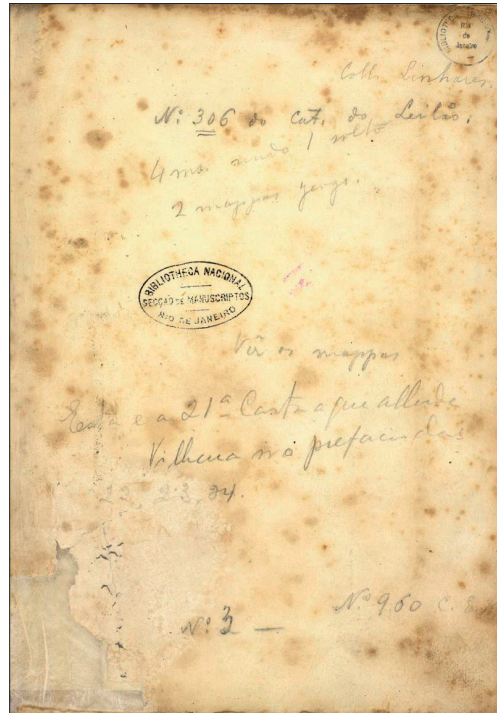 BIBLIOTHECA
Rio
de
Janeiro
Coll. Linhares.
Nº 306 do Cat. do Leilão.
4 ms. sendo 1
2 mappas
BIBLIOTHECA NACIONAL
SECÇÃO DE MANUSCRIPTOS
RIO DE JANEIRO
Vir os mappas
Esta é a 21ª Carta a que allude
Vilhena no prefacio das
22, 23, 24.
Nº 3 —
Nº 960 C. E.